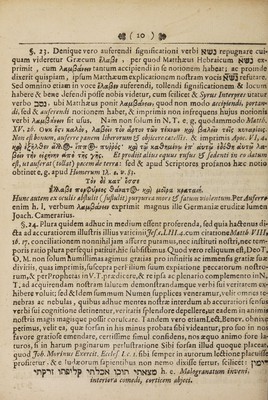 ( 20 )
§. 23. Denique vero auferendi significationi verbi נשא repugnare cui-
quam videretur Græcum ἔλαβε, per quod Matthæus Hebraicum נשא ex-
primit, cum λαμβάνειν tantum accipiendi in se notionem habeat; ac proinde
dixerit quispiam, ipsum Matthæum explicationem nostram vocis נשא refutare.
Sed omnino etiam in voce ἔλαβε auferendi, tollendi significationem & locum
habere & bene defendi posse nobis videtur, cum scilicet & Syrus Interpres utatur
verbo נסב ubi Matthæus ponit λαμβάνειν, quod non modo accipiendi, portan-
di, sed & auferendi notionem habet, & imprimis non infrequens hujus notionis
verbi λαμβάνειν sit usus. Nam non solum in N. T. e. g. quodammodo Matth.
XV. 26. Οὐκ ἔστι καλὸν, λαβεῖν τὸν ἄρτον τῶν τέκνων καὶ βαλεῖν τοῖς κυναρίοις.
Non est bonum, auferre panem liberorum & objicere catellis. & imprimis Apoc. VI, 4.
καὶ ἐξῆλθεν ἄλλος ἵππος πυῤῥὸς καὶ τῷ καθημένῳ ἐπ' αὐτῷ ἐδόθη αὐτῷ λα-
βεῖν τὴν εἰρήνην ἀπὸ τῆς γῆς. Et prodiit alius equus rufus & sedenti in eo datum
est, ut auferret (tollat) pacem de terra: sed & apud Scriptores profanos hæc notio
obtinet, e. g. apud Homerum Il. ε. v. 83.
Τὸν δὲ κατ' ὄσσε
Ἔλλαβε πορφύρεος θάνατος καὶ μοῖρα κραταιή.
Hunc autem ex oculis abstulit (sustulit) purpurea mors & fatum violentum. Per Auferre
enim h. l. verbum λαμβάνειν exprimit magnus ille Germaniæ eruditæ lumen
Joach. Camerarius.
§. 24. Plura quidem adhuc in medium essent proferenda, sed quia hactenus di-
cta ad accuratiorem illustris illius vaticinii Jesa LIII. 4. cum citatione Matthæi VIII,
16. 17. conciliationem nonnihil jam afferre putamus, nec instituti nostri, nec tem-
poris ratio plura per sequi patitur, hic subsistimus. Quod vero reliquum est, Deo T.
O. M. non solum humillimas agimus gratias pro infinitis ac immensis gratiæ suæ
divitiis, quas imprimis, suscepta pati filium suum expiatione peccatorum nostro-
rum, & per Prophetas in V. T. prædicere, & re ipsa ac plenario complemento in N.
T. ad acquirendam nostram salutem demonstrandamque verbi sui certitudinem ex-
hibere voluit; sed & Idem summum Numen supplices veneramur, velit omnes te-
nebras ac nebulas, quibus adhuc mentes nostræ interdum ab accuratiori sensus
verbi sui cognitione detinentur, veritatis splendore depellere, ut eadem in animis
nostris magis magisque possit coruscare. Tandem vero etiam Lect. Benev. obnixe
petimus, velit ea, quæ forsan in his minus probata sibi videantur, pro suo in nos
favore gratiose emendare, certissime simul confidens, nos æquo animo fore la-
turos, si in harum paginarum perlustratione Sibi forsan illud quoque placue-
rit, quod Joh. Morinus Exercit. Eccles. l. c. 1. sibi semper in autorum lectione placuisse
profitetur, & a Judæorum sapientibus non nemo dixisse fertur, scilicet: רימון
מצאתי תוכו אכלתי קליפתו זרקתי h. e. Malogranatum inveni,
interiora comedi, corticem abjeci.